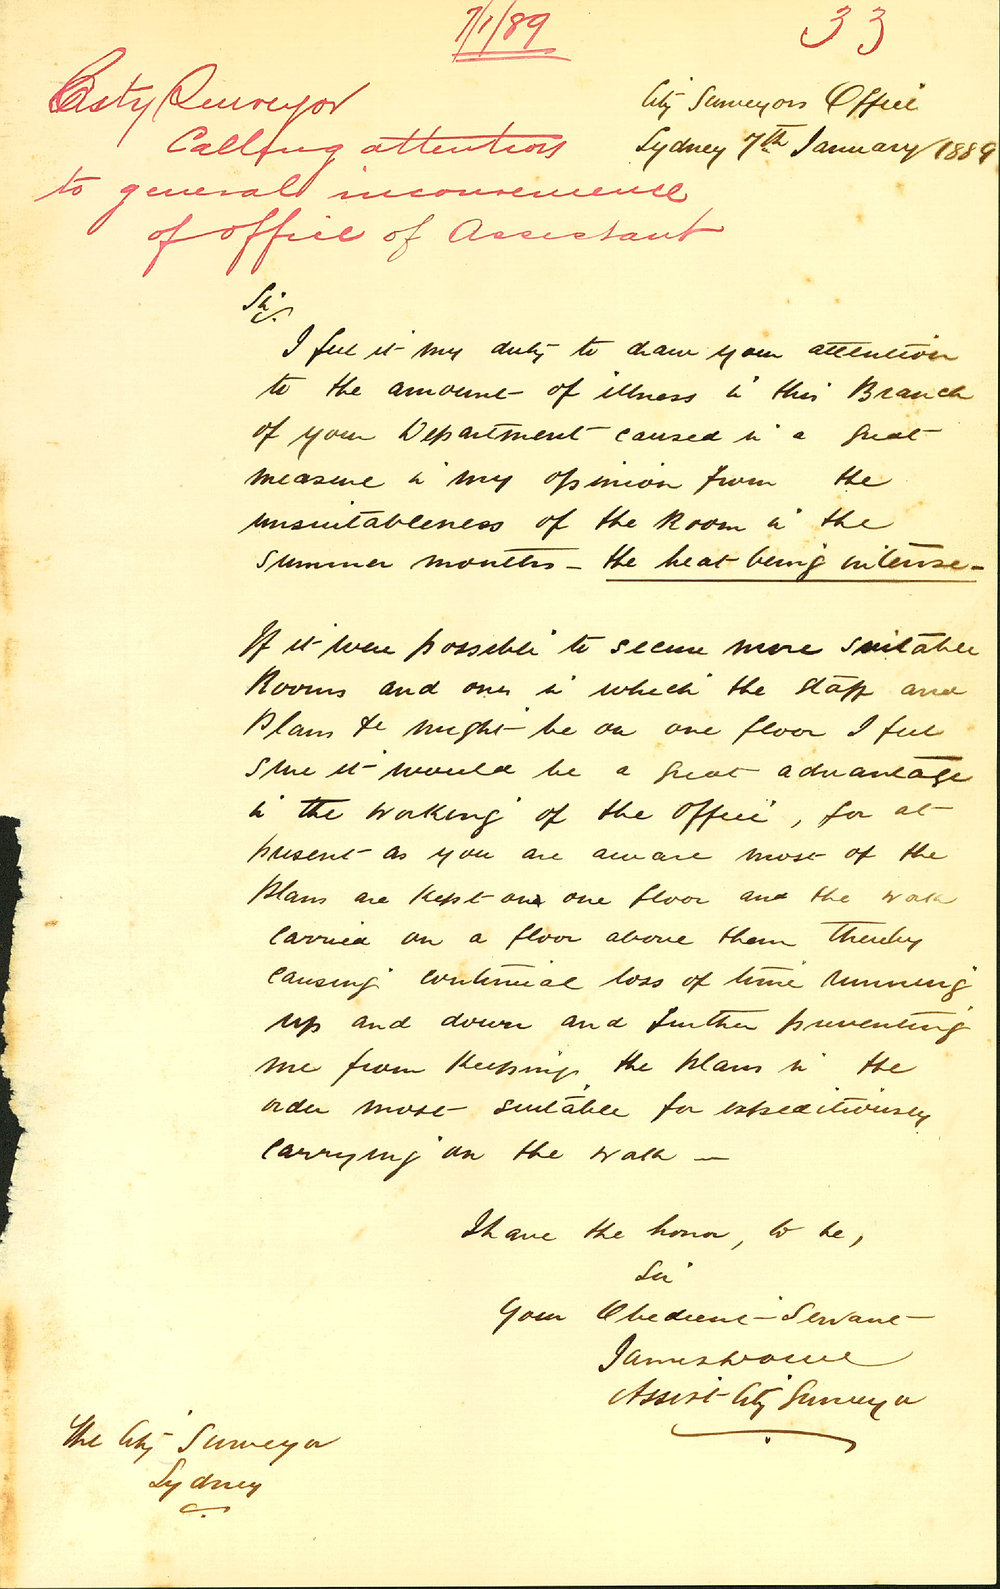 7/1/89
33
City Surveyor
Calling attention
to general inconvenience
of office of Assistant
City Surveyors Office
Sydney 7th January 1889
Sir,
I feel it my duty to draw your attention
to the amount of illness in this Branch
of your Department caused in a great
measure in my opinion from the
unsuitableness of the Room in the
summer months – the heat being intense –
If it were possible to secure more suitable
Rooms and ones in which the staff and
Plans &c might be on one floor I feel
sure it would be a great advantage
in the working of the office, for at
present as you are aware most of the
Plans are kept on one floor and the work
carried on a floor above them thereby
causing continual loss of time running
up and down and further preventing
me from keeping the Plans in the
order most suitable for expeditiously
carrying on the work —
I have the honor, to be,
Sir
Your Obedient Servant
James
Assist City Surveyor
The City Surveyor
Sydney